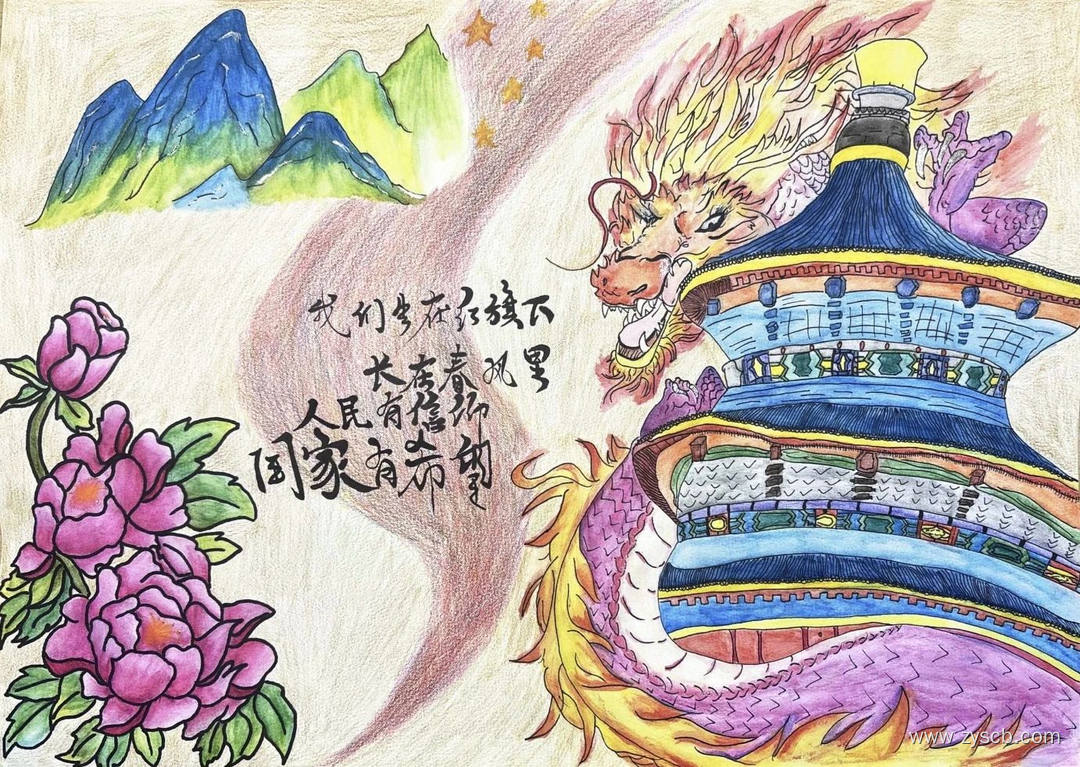 我们生在红旗下
长在春风里
人民有信仰
国家有希望
www.zyscb.com